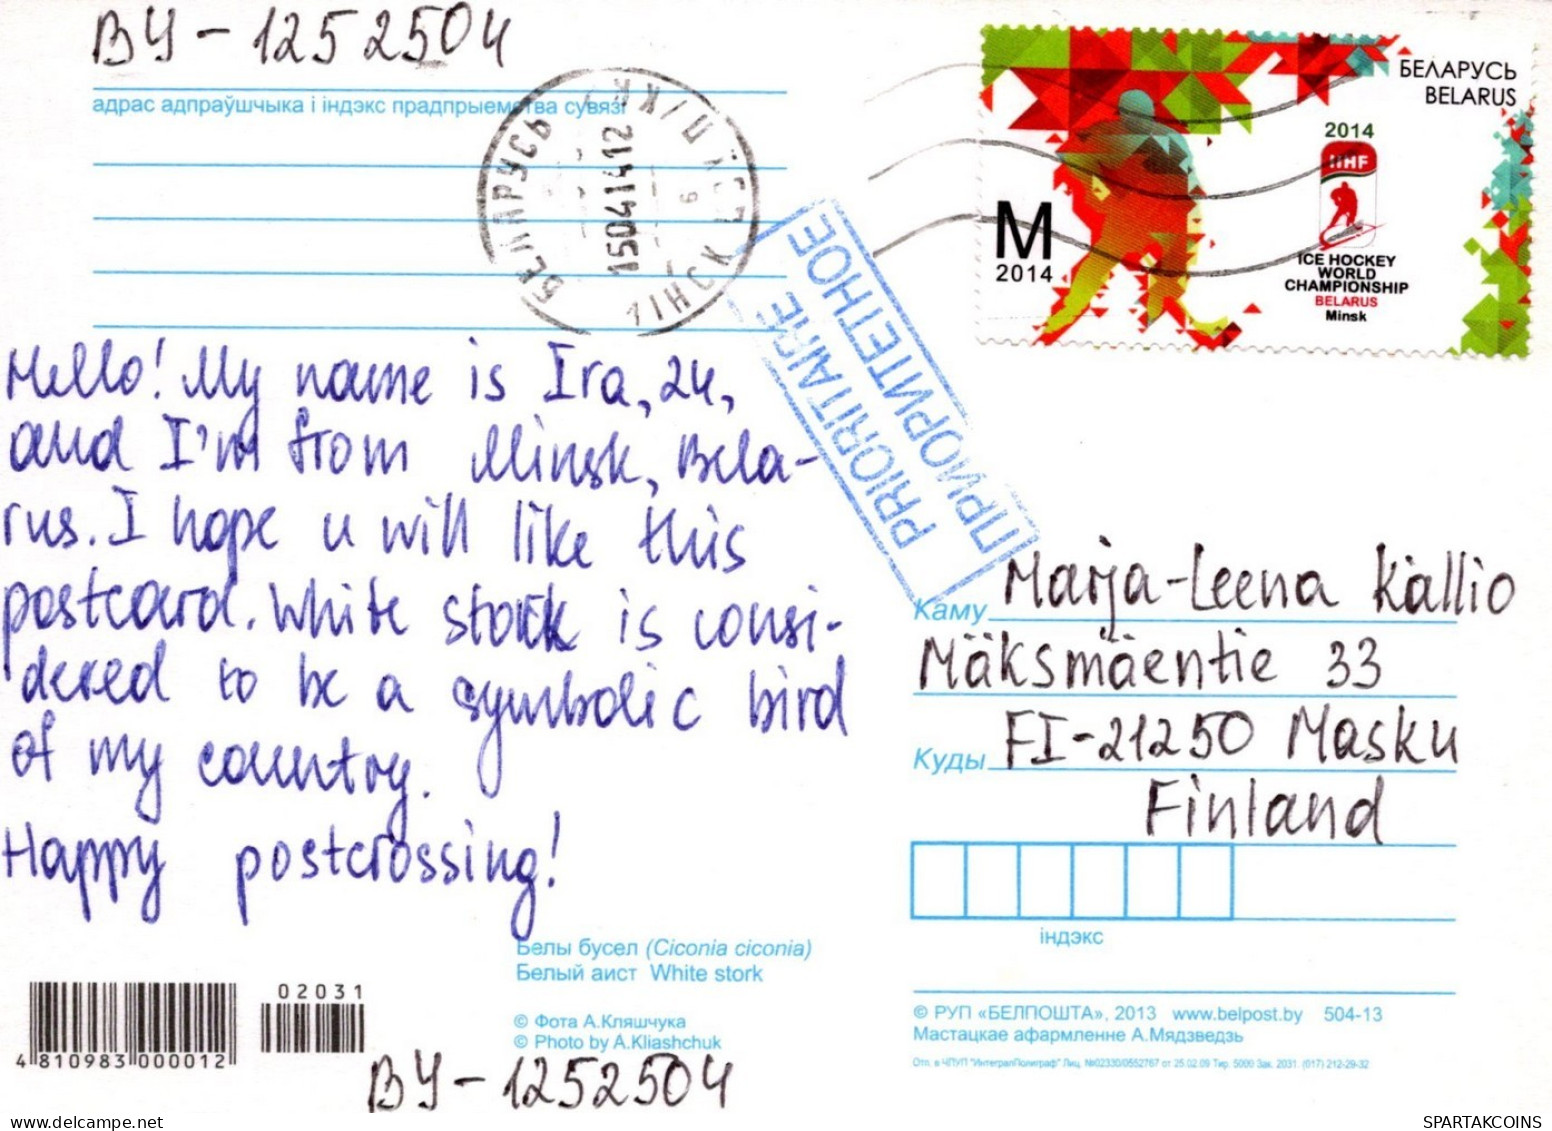 BY - 1252504
адрас адпраўшчыка і індэкс прадпрыемства сувязі
БЕЛАРУСЬ
15041412
БЕЛАРУСЬ
BELARUS
2014
IIHF
M
2014
ICE HOCKEY
WORLD
CHAMPIONSHIP
BELARUS
Minsk
PRIORITAIRE
ПРИОРИТЕТНОЕ
Hello! My name is Ira, 24,
and I'm from Minsk, Bela-
rus. I hope u will like this
postcard. White stork is consi-
dered to be a symbolic bird
of my country.
Happy postcrossing!
Каму Marja-Leena Kallio
Mäksmäentie 33
Куды FI-21250 Masku
Finland
індэкс
Белы бусел (Ciconia ciconia)
Белый аист White stork
© Фота А.Кляшчука
© Photo by A.Kliashchuk
02031
4 810983 000012
BY - 1252504
© РУП «БЕЛПОШТА», 2013 www.belpost.by 504-13
Мастацкае афармленне А.Мядзведзь
Отп. в ЧПУП "ИнтегралПолиграф" Лиц. №02330/0552767 от 25.02.09 Тир. 5000 Зак. 2031. (017) 212-29-32
SPARTAKCOINS
delcampe.net